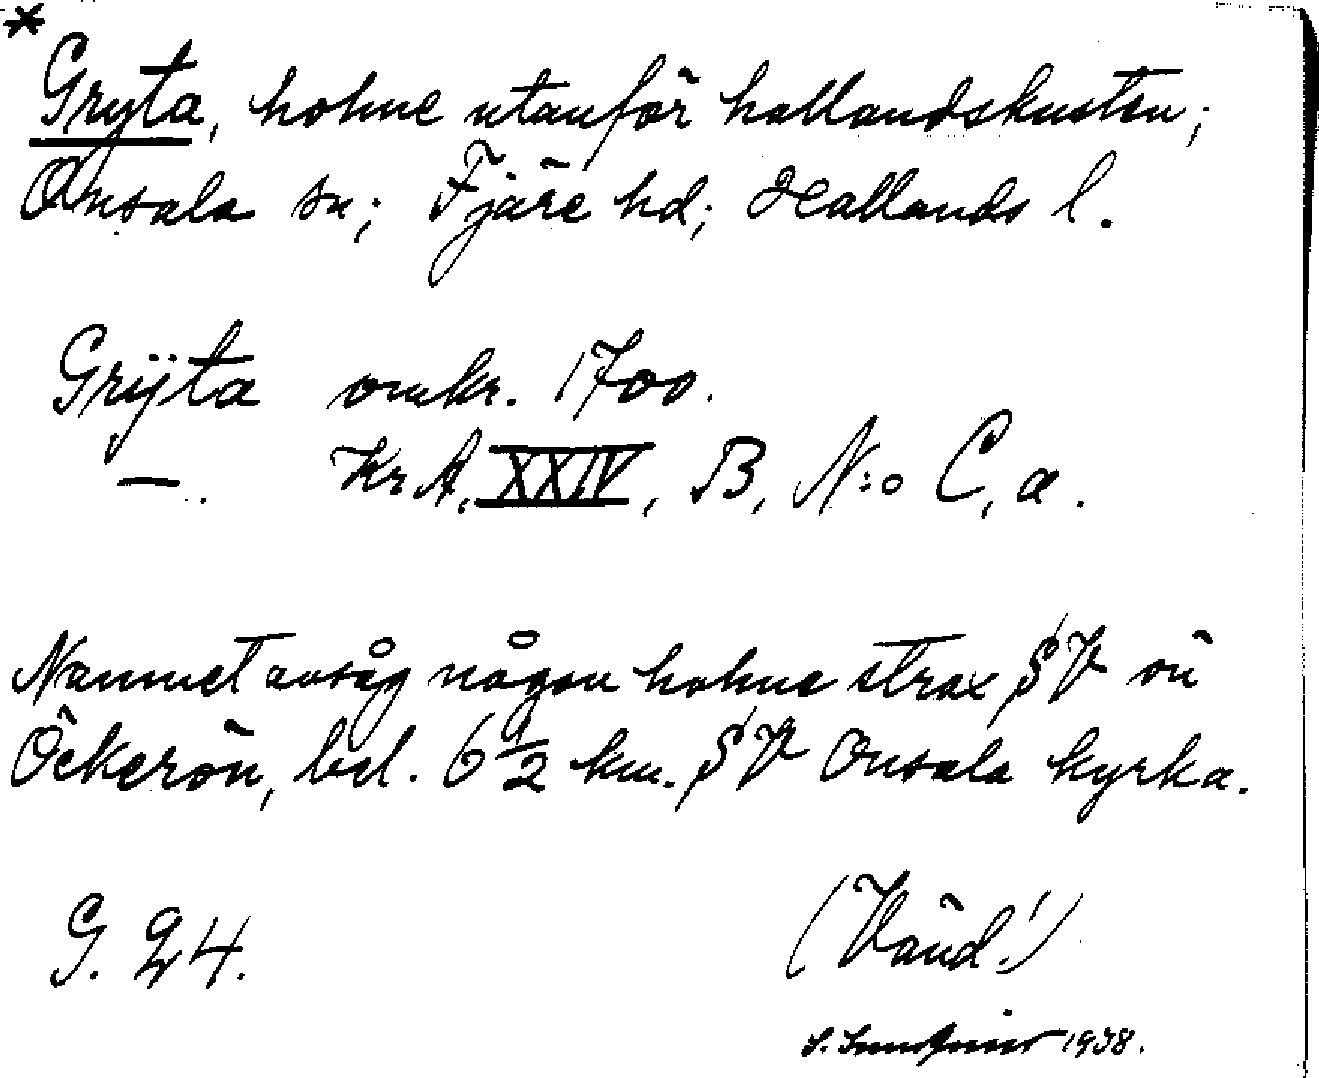 *
Gryta, holme utanför hallandskusten;
Onsala sn; Fjäre hd; Hallands l.
Grÿta omkr. 1700.
—. Kr A, XXIV, B, N:o C, a.
Namnet avsåg någon holme strax SV om
Öckerön, bel. 6 1/2 km. SV Onsala kyrka.
G. 24. (Vänd!)
1938.